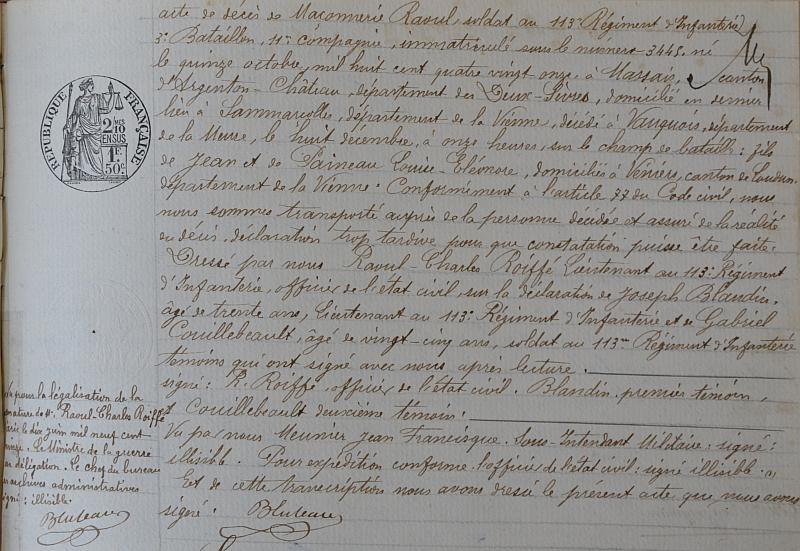 acte de décès de Maçonnerie Raoul, soldat au 113e Régiment d'Infanterie
3e Bataillon, 11e compagnie, immatriculé sous le numéro 3445. né
le quinze octobre, mil huit cent quatre vingt onze à Massais, canton
d'Argenton-Château, département des Deux-Sèvres, domicilié en dernier
lieu à Sammarcolles, département de la Vienne, décédé à Vauquois, département
de la Meuse, le huit décembre, à onze heures, sur le champ de bataille; fils
de Jean et de Saineau Louise-Eléonore, domiciliés à Véniers, canton de Loudun,
département de la Vienne. Conformément à l'article 77 du Code civil, nous
nous sommes transporté auprès de la personne décédée et assuré de la réalité
du décès. déclaration trop tardive pour que constatation puisse être faite.
Dressé par nous Raoul-Charles Roiffé Lieutenant au 113e Régiment
d'Infanterie, officier de l'état civil, sur la déclaration de Joseph Blandin,
âgé de trente ans, Lieutenant au 113e Régiment d'Infanterie et de Gabriel
Couillebeault, âgé de vingt-cinq ans, soldat au 113me Régiment d'Infanterie
témoins qui ont signé avec nous après lecture.
signé: R. Roiffé, officier de l'état civil. Blandin, premier témoin,
Couillebeault deuxième témoin.
Vu par nous Meunier Jean Francisque, Sous-Intendant Militaire: signé:
illisible. Pour expédition conforme. l'officier de l'état civil: signé illisible.
Et de cette transcription nous avons dressé le présent acte que nous avons
signé: Bluteau
RÉPUBLIQUE FRANÇAISE
2/10
EN SUS
1F
50c
Vu pour la légalisation de la
signature de Mr. Raoul-Charles Roiffé
Paris le dix juin mil neuf cent
quinze. Le Ministre de la guerre
par délégation. Le chef du bureau
des archives administratives
signé: illisible.
Bluteau